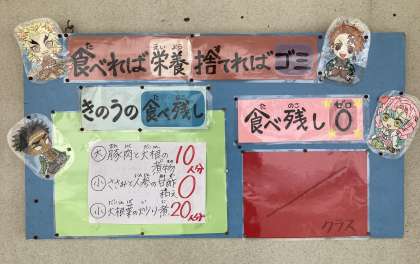 食べれば栄養捨てればゴミ
きのうの食べ残し
食べ残し0
ゼロ
大 豚肉と大根の煮物 10人分
小 ささみと人参の甘酢和え 0
小 大根葉の炒り煮 20人分
クラス